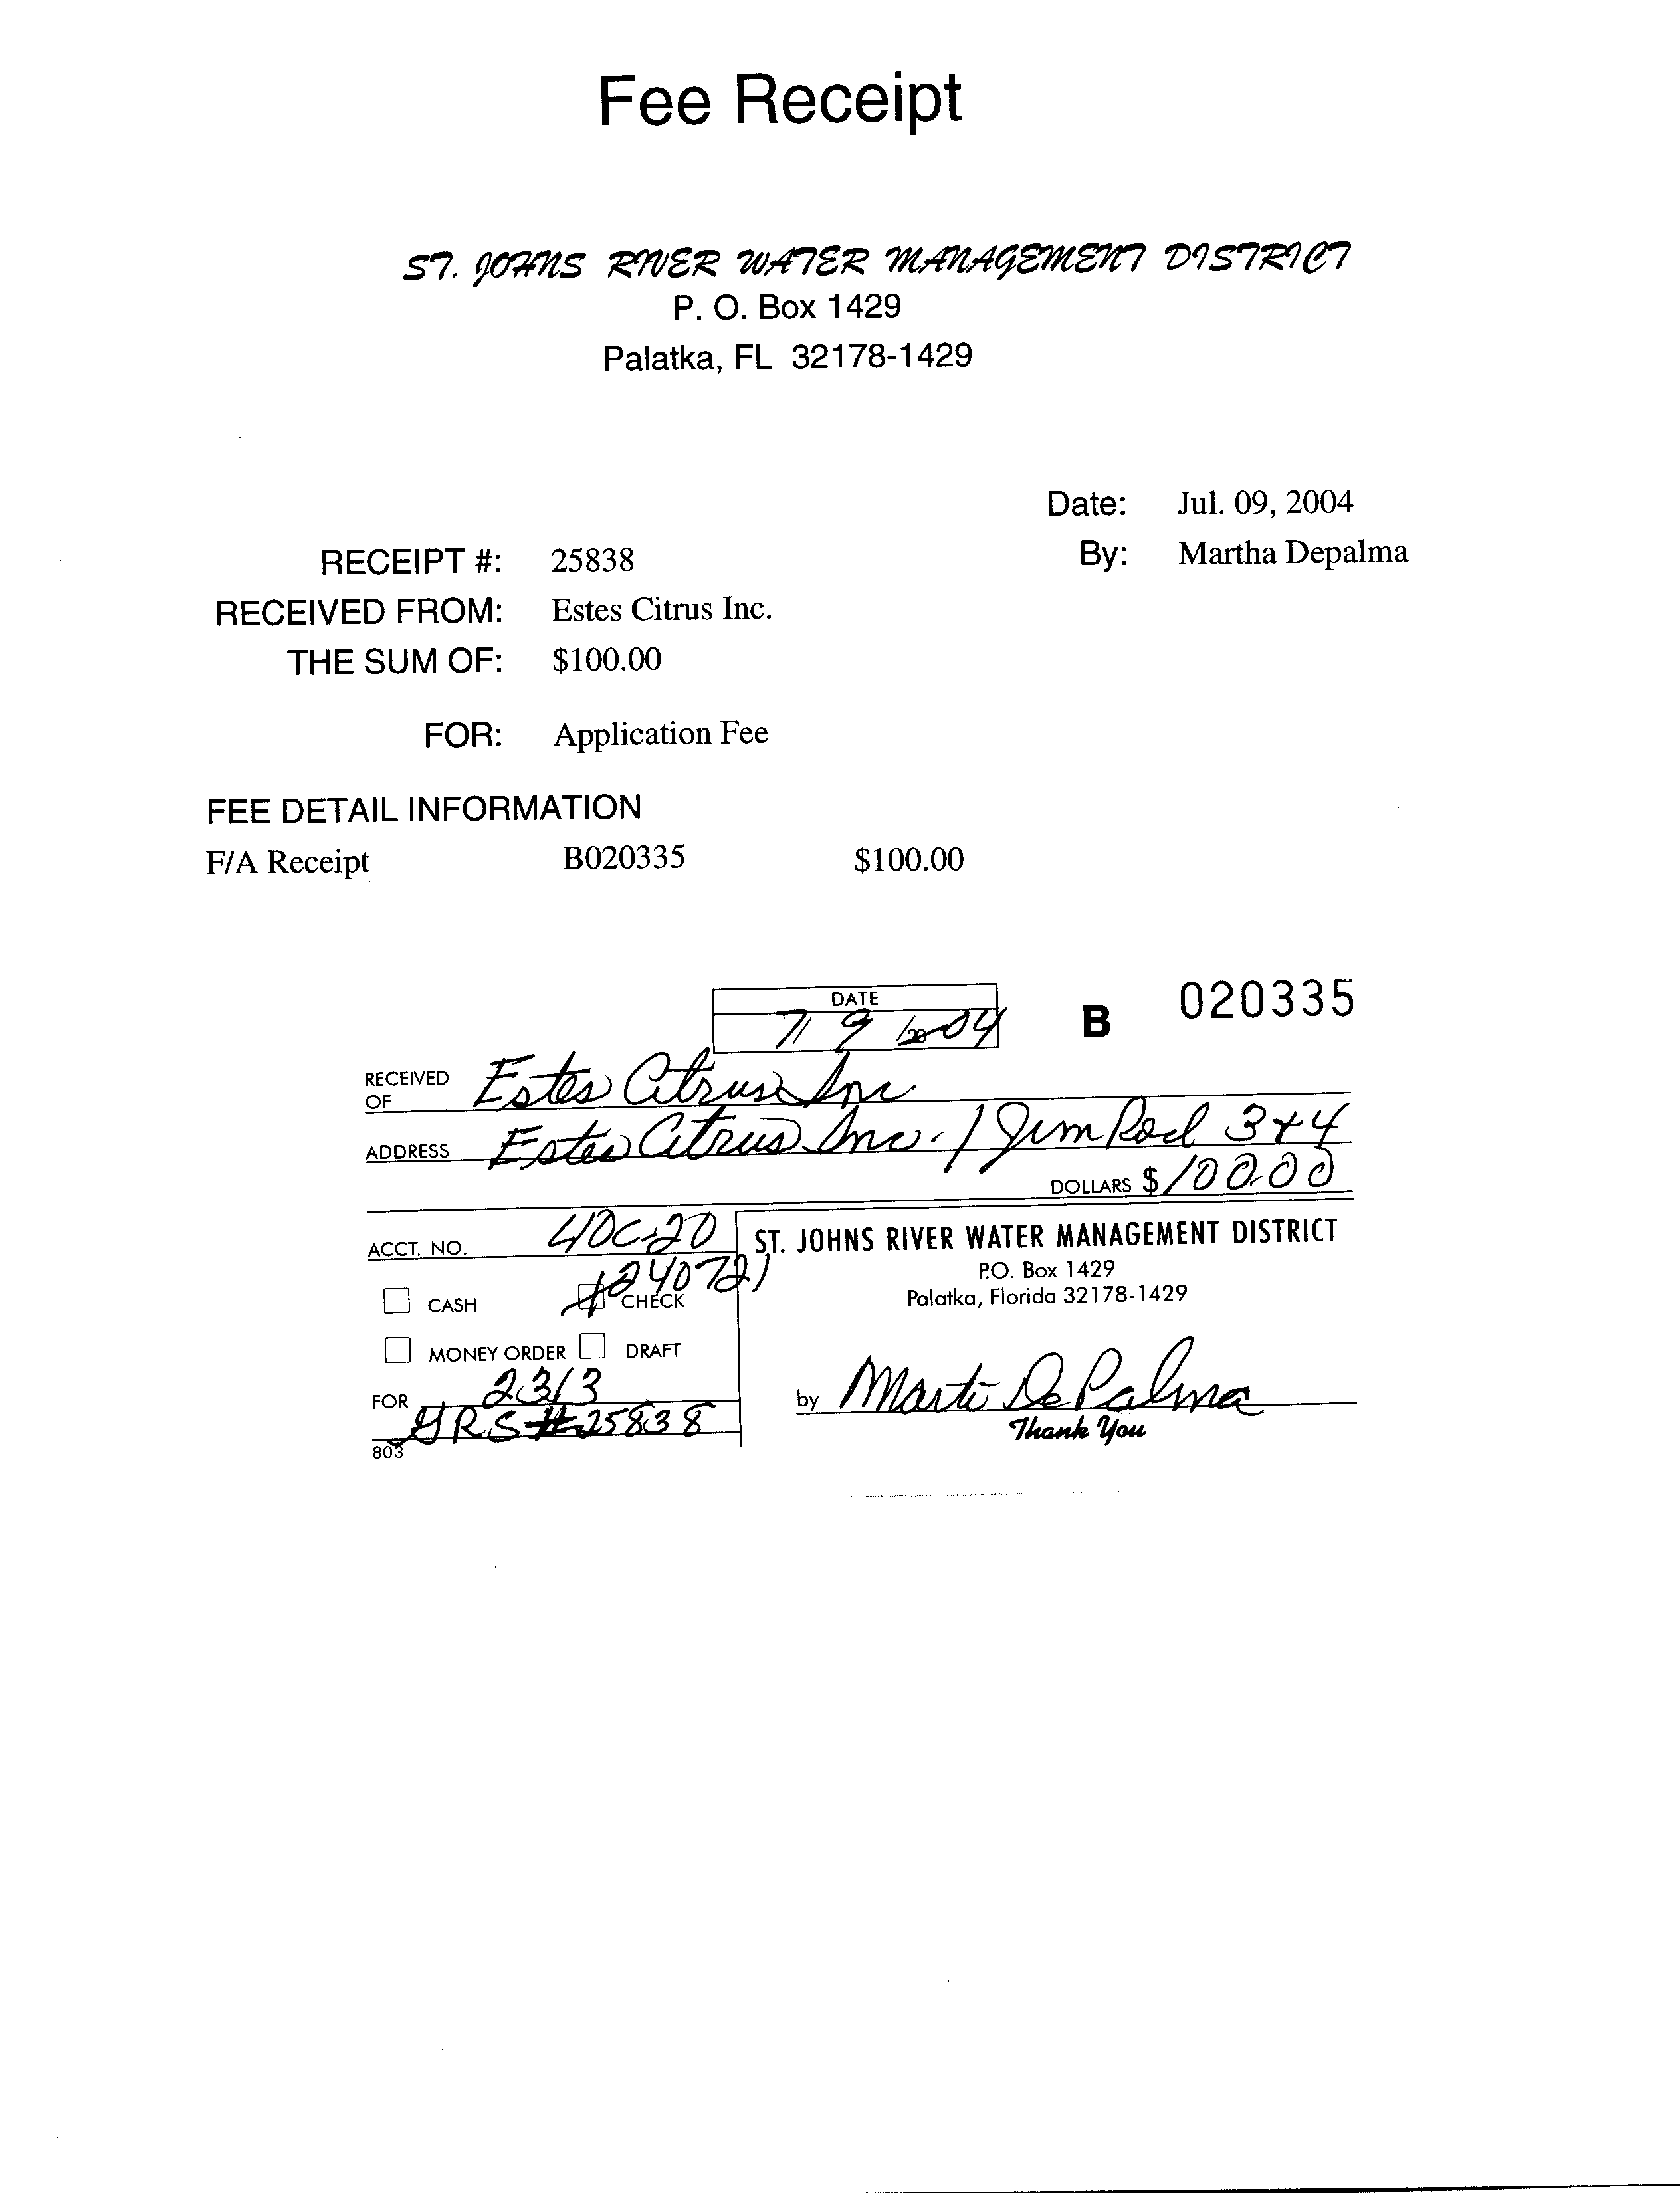 Fee Receipt
ST. JOHNS RIVER WATER MANAGEMENT DISTRICT
P. O. Box 1429
Palatka, FL 32178-1429
Date: Jul. 09, 2004
By: Martha Depalma
RECEIPT #: 25838
RECEIVED FROM: Estes Citrus Inc.
THE SUM OF: $100.00
FOR: Application Fee
FEE DETAIL INFORMATION
F/A Receipt B020335 $100.00
DATE
7/ 9 /2004
B 020335
RECEIVED OF Estes Citrus Inc
ADDRESS Estes Citrus Inc. / Jim Rod 3+4
DOLLARS $ 100.00
ACCT. NO. 40C-20
CASH CHECK #240721
MONEY ORDER DRAFT
FOR 2313
GRS #25838
803
ST. JOHNS RIVER WATER MANAGEMENT DISTRICT
P.O. Box 1429
Palatka, Florida 32178-1429
by Marti DePalma
Thank You